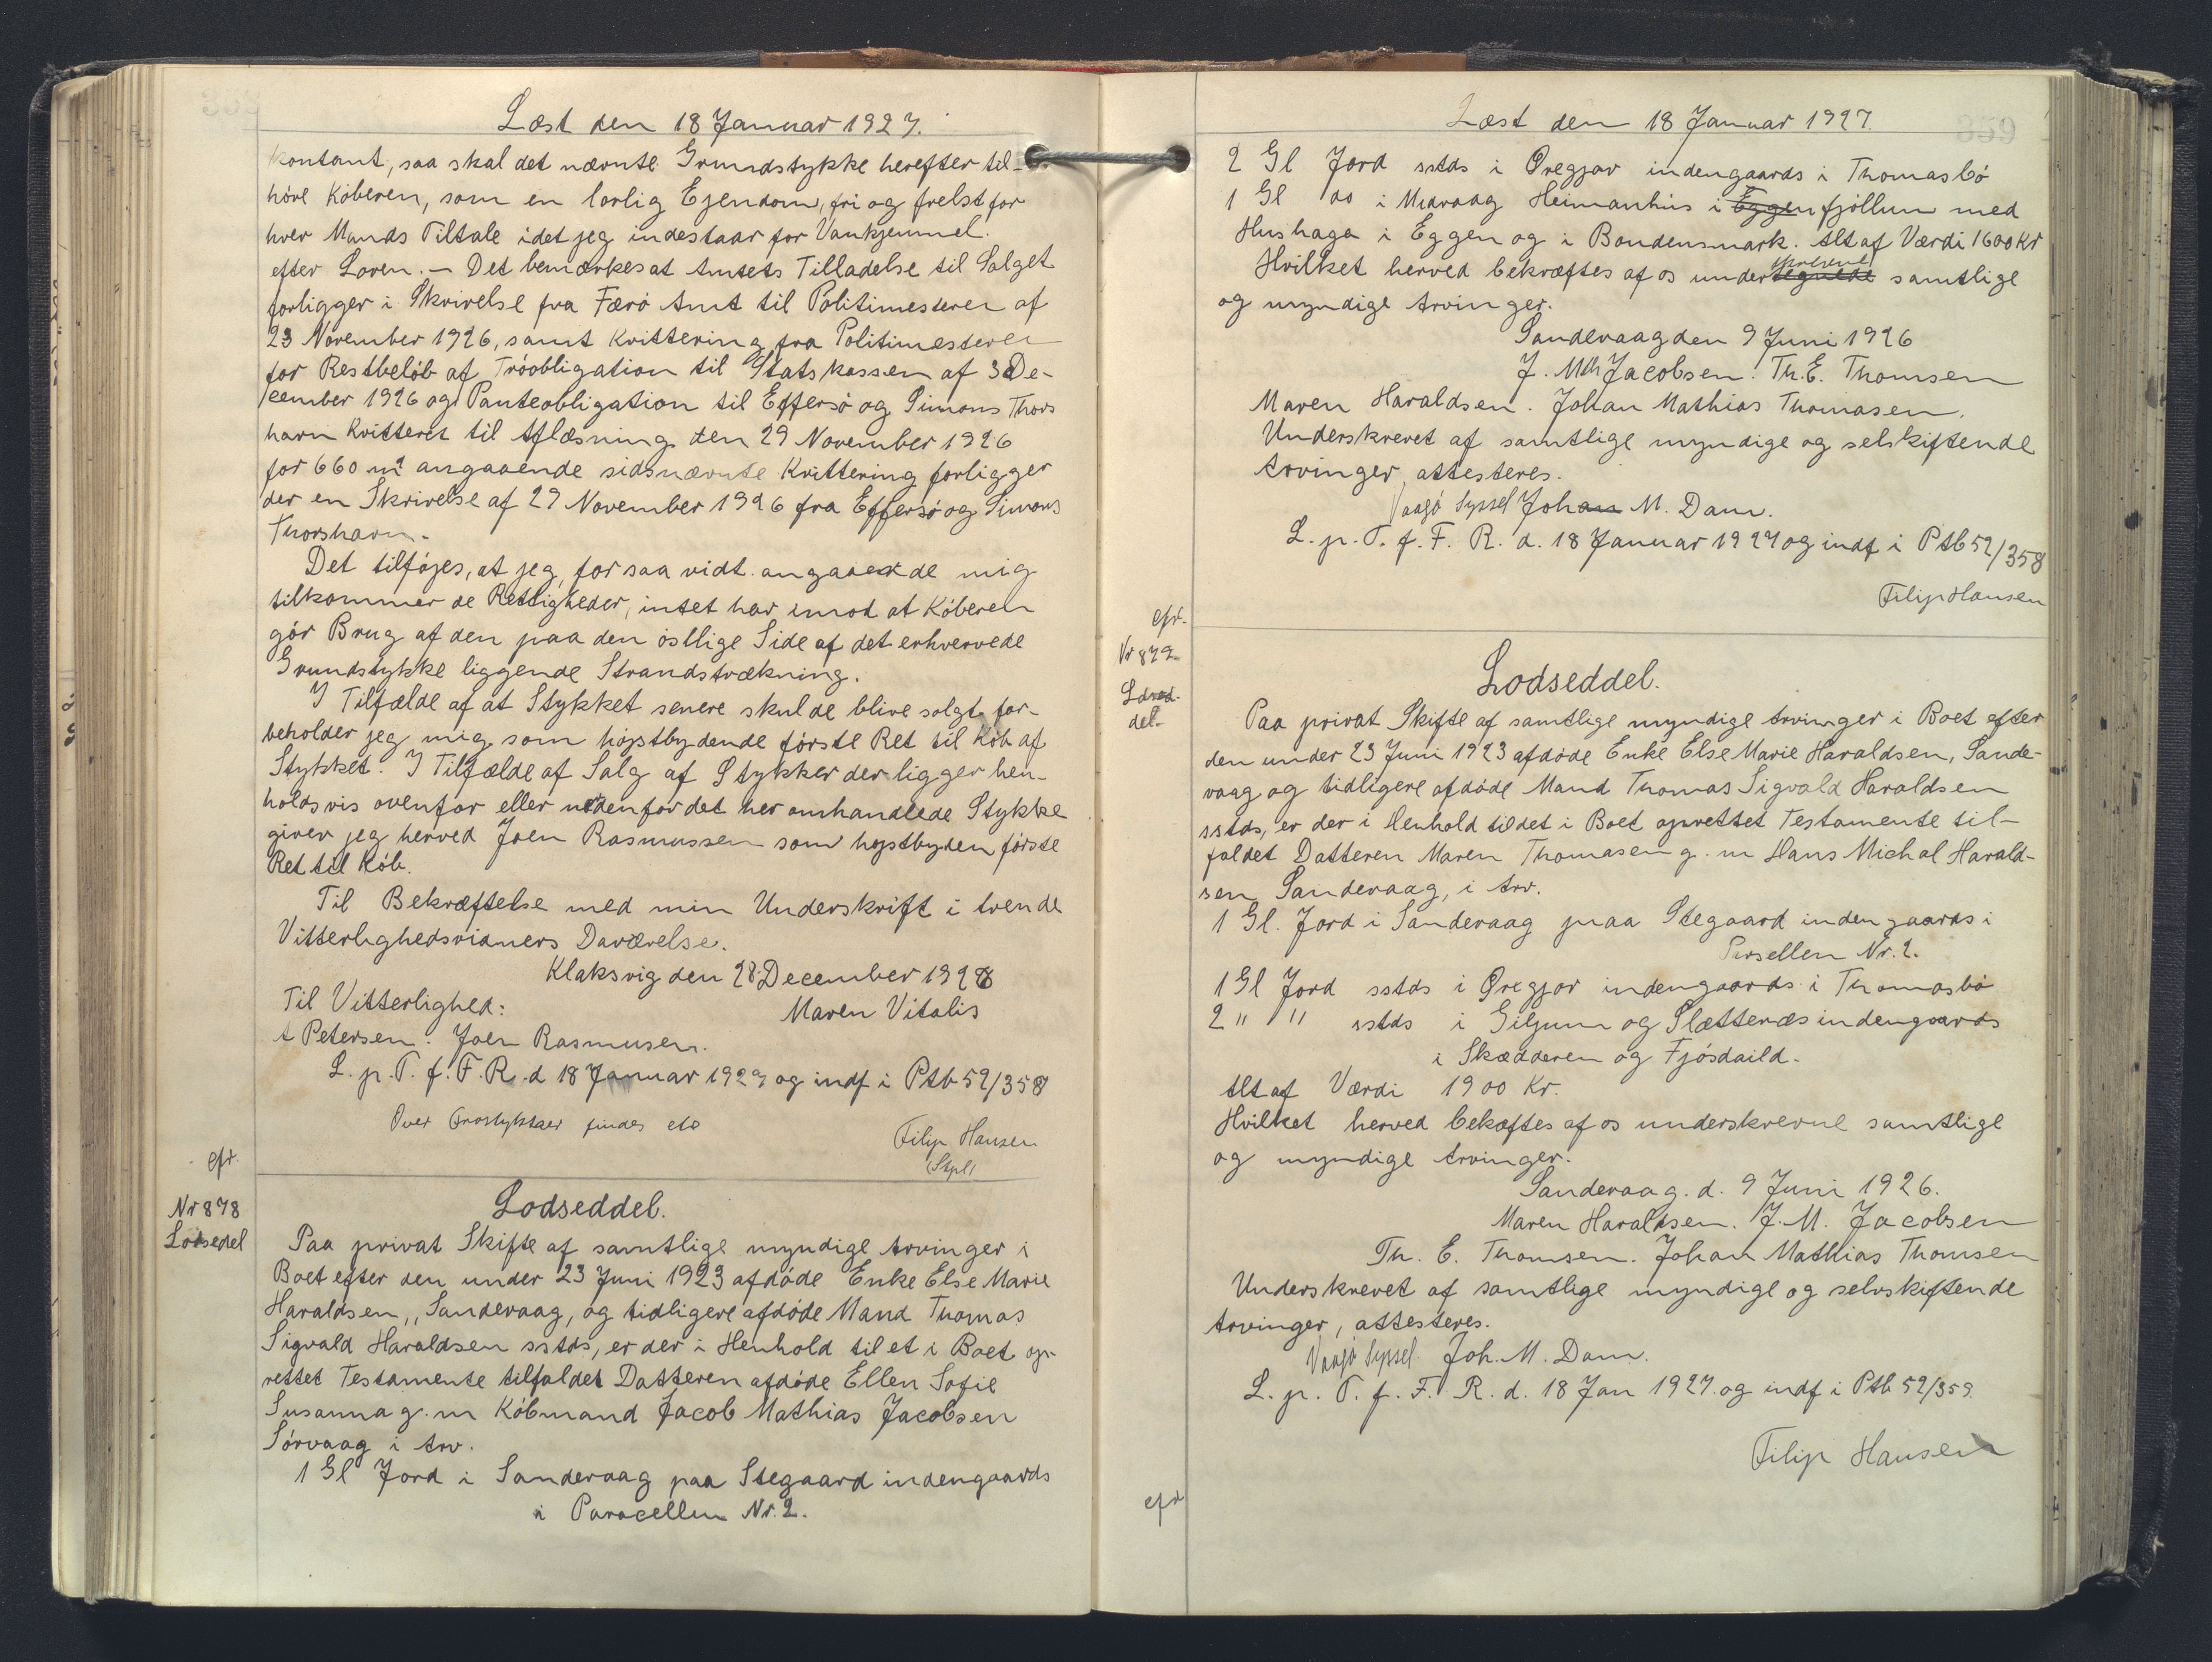 Læst den 18 Januar 1927.
kontant, saa skal det nævnte Grundstykke herefter til-
höre Köberen, som en lovlig Ejendom, fri og frelst for
hver Mands Tiltale idet jeg indestaar for Vankjemmel.
efter Loven. - Det bemærkes at Amtets Tilladelse til Salget
forligger i Skrivelse fra Færö Amt til Politimesteren af
23 November 1926, samt Kvittering fra Politimesteren
for Restbelöb af Tróobligation til Statskassen af 3 De-
cember 1926 og Panteobligation til Effersö og Simons Thors
havn Kvitteret til Aflæsning den 29 November 1926
for 660 m² angaaende sidsnævnte Kvittering forligger
der en Skrivelse af 29 November 1926 fra Effersö og Simons
Thorshavn.
Det tilföjes, at jeg, for saa vidt angaaende mig
tilkommende Rettigheder, intet har imod at Köberen
gör Brug af den paa den östlige Side af det erhvervede
Grundstykke liggende Strandstrækning.
I Tilfælde af at Stykket senere skulde blive solgt for-
beholder jeg mig som höjstbydende förste Ret til Köb af
Stykket. I Tilfælde af Salg af Stykker der ligger hen-
holdsvis ovenfor eller nedenfor det her omhandlede Stykke
giver jeg herved Joen Rasmussen som hojstbyden förste
Ret til Köb.
Til Bekræftelse med min Underskrift i tvende
Vitterlighedsvidners Daværelse.
Klaksvig den 28 December 1926
Til Vitterlighed: Maren Vitalis
A Petersen. Joen Rasmusen.
L. p. T. f. F. R. d 18 Januar 1927 og indf i Ptb 52/358
Over Grostykker findes ele
Filip Hansen
(Stpl)
efr.
Nr 878
Lodsedel
Lodseddel.
Paa privat Skifte af samtlige myndige Arvinger i
Boet efter den under 23 Juni 1923 afdöde Enke Else Marie
Haraldsen, Sandevaag, og tidligere afdöde Mand Thomas
Sigvald Haraldsen sstds, er der i Henhold til et i Boet op-
rettet Testamente tilfaldet Datteren afdöde Ellen Sofie
Susanna g. m Köbmand Jacob Mathias Jacobsen
Sörvaag i Arv.
1 Gl Jord i Sandevaag paa Stegaard indengaards
i Paracellen Nr. 2.
Læst den 18 Januar 1927.
359
2 Gl Jord sstds i Öregjar indengaards i Thomasbö
1 Gl do i Midvaag Heimanhús i Eggen fjöllum med
Hushage i Eggen og i Bondensmark. Alt af Værdi 1600 Kr
Hvilket herved bekræftes af os undertegnede skrevne samtlige
og myndige Arvinger.
Sandevaag den 9 Juni 1926
J. Mth Jacobsen. Th. E. Thomsen
Maren Haraldsen. Johan Mathias Thomasen.
Underskrevet af samtlige myndige og selskiftende
Arvinger, attesteres.
Vaagö Syssel Johan M. Dam.
L. p. T. f. F. R. d. 18 Januar 1927 og indf i Ptb 52/358
Filip Hansen
efr.
Nr 879
Lodsed-
del-
Lodseddel.
Paa privat Skifte af samtlige myndige Arvinger i Boet efter
den under 23 Juni 1923 afdöde Enke Else Marie Haraldsen, Sande-
vaag og tidligere afdöde Mand Thomas Sigvald Haraldsen
sstds, er der i Henhold til det i Boet oprettet Testamente til-
faldet Datteren Maren Thomasen g. m Hans Michal Harald-
sen, Sandevaag, i Arv.
1 Gl. Jord i Sandevaag paa Stegaard indengaards i
Parsellen Nr. 2.
1 Gl Jord sstds i Öregjar indengaards i Thomasbö
2 " " sstds i Giljum og Slætteræs indengaards
i Skædderen og Fjósdaild.
Alt af Værdi 1900 Kr.
Hvilket herved bekæftes af os underskrevne samtlige
og myndige Arvinger.
Sandevaag. d. 9 Juni 1926.
Maren Haraldsen. J. M. Jacobsen
Th. E. Thomsen. Johan Mathias Thomsen
Underskrevet af samtlige myndige og selvskiftende
Arvinger, attesteres.
Vaagö Syssel Joh. M. Dam.
L. p. T. f. F. R. d. 18 Jan 1927. og indf i Ptb 52/359
Filip Hansen
efr